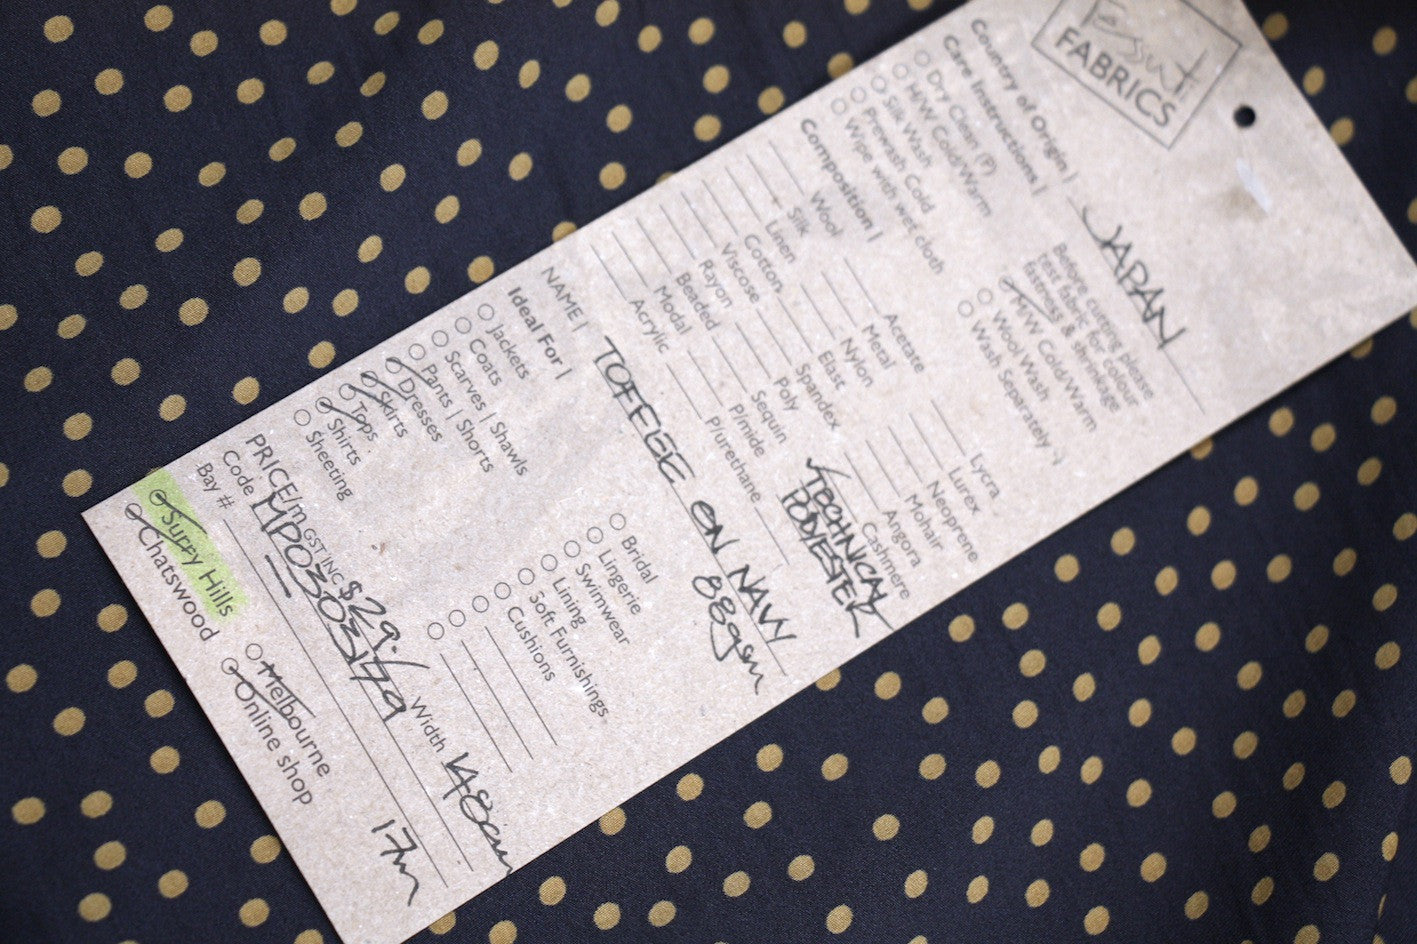 FABRICS
Country of Origin | JAPAN
Care Instructions |
Dry Clean (P)
H/W Cold/Warm
Silk Wash
Prewash Cold
Wipe with wet cloth
Before cutting please
test fabric for colour
fastness & shrinkage
M/W Cold/Warm
Wool Wash
Wash Separately
Composition |
Wool
Silk
Linen
Cotton
Viscose
Rayon
Beaded
Modal
Acrylic
Acetate
Metal
Nylon
Elast
Spandex
Poly
Sequin
P/mide
P/urethane
Lycra
Lurex
Neoprene
Mohair
Angora
Cashmere
TECHNICAL
POLYESTER
NAME | TOFFEE ON NAVY
88gsm
Ideal For |
Jackets
Coats
Scarves | Shawls
Pants | Shorts
Dresses
Skirts
Tops
Shirts
Sheeting
Bridal
Lingerie
Swimwear
Lining
Soft Furnishings
Cushions
PRICE/m GST INC $29.- Width 148cm
Code
Bay # 17m
Surry Hills
Chatswood
Melbourne
Online shop